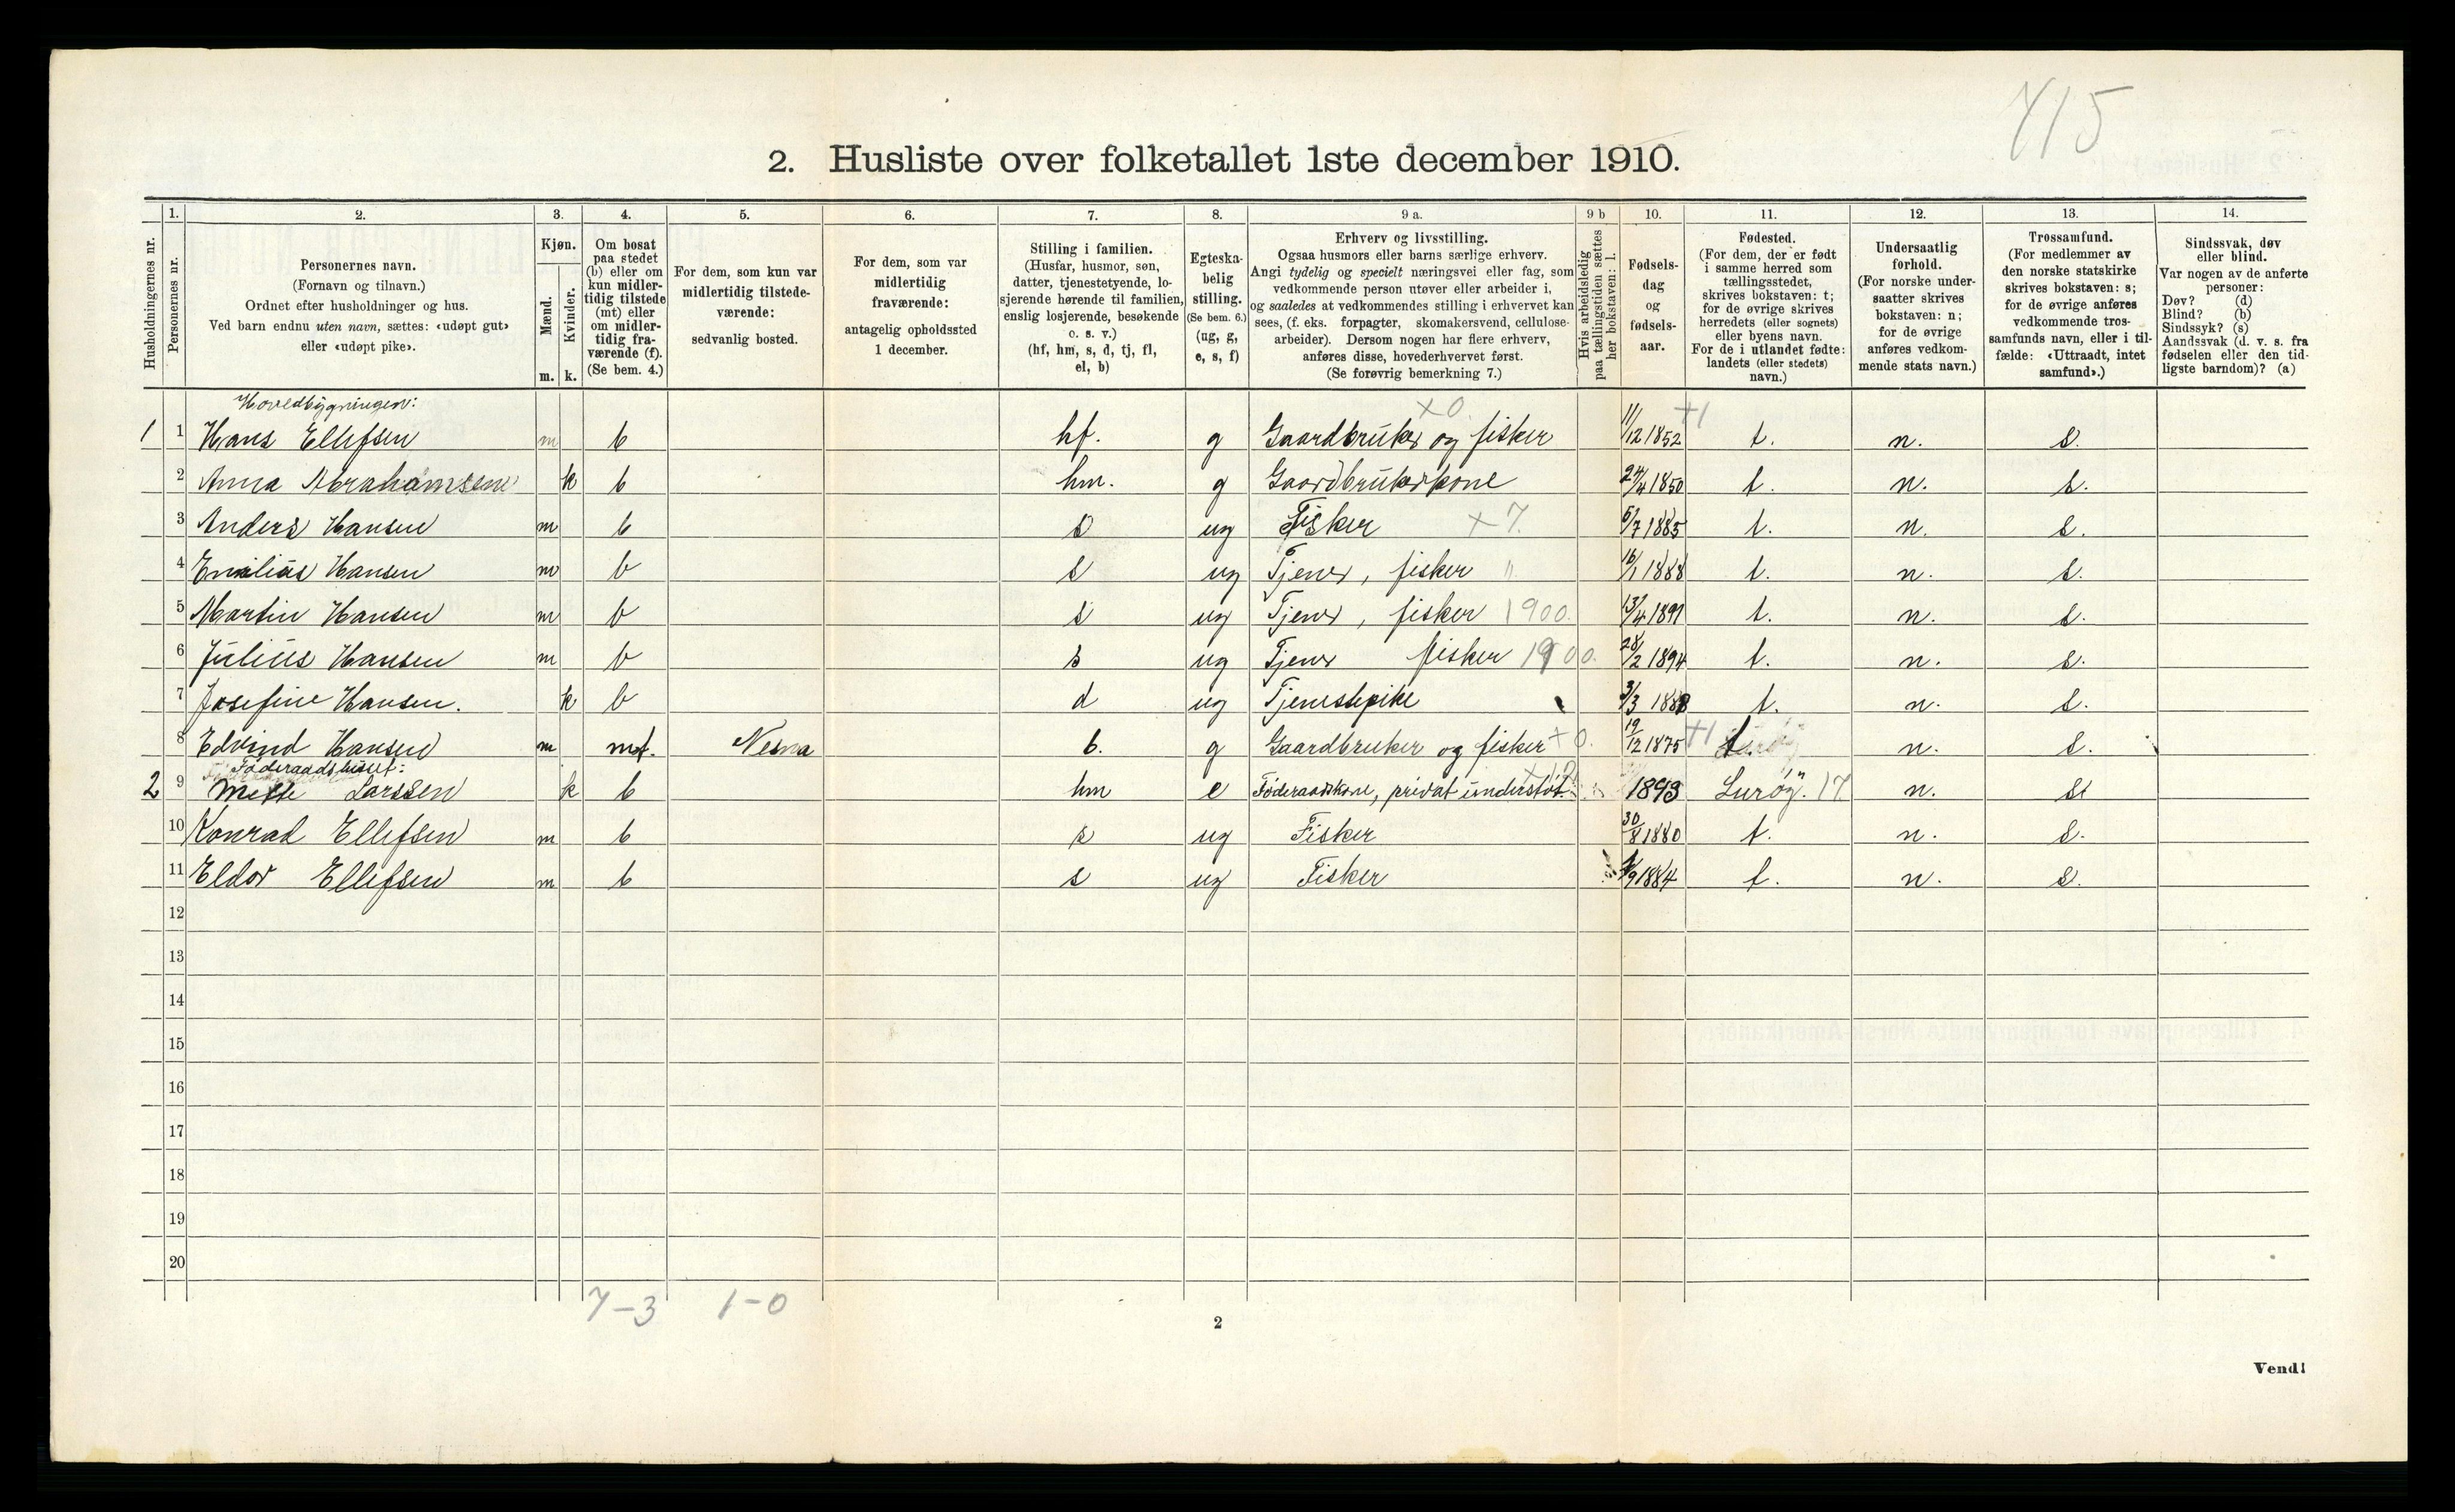 715
2. Husliste over folketallet 1ste december 1910.
Husholdningernes nr.
1.
Personernes nr.
2.
Personernes navn.
(Fornavn og tilnavn.)
Ordnet efter husholdninger og hus.
Ved barn endnu uten navn, sættes: «udøpt gut»
eller «udøpt pike».
3.
Kjøn.
Mænd.
Kvinder.
m. k.
4.
Om bosat
paa stedet
(b) eller om
kun midler-
tidig tilstede
(mt) eller
om midler-
tidig fra-
værende (f).
(Se bem. 4.)
5.
For dem, som kun var
midlertidig tilstede-
værende:
sedvanlig bosted.
6.
For dem, som var
midlertidig
fraværende:
antagelig opholdssted
1 december.
7.
Stilling i familien.
(Husfar, husmor, søn,
datter, tjenestetyende, lo-
sjerende hørende til familien,
enslig losjerende, besøkende
o. s. v.)
(hf, hm, s, d, tj, fl,
el, b)
8.
Egteska-
belig
stilling.
(Se bem. 6.)
(ug, g,
e, s, f)
9 a.
Erhverv og livsstilling.
Ogsaa husmors eller barns særlige erhverv.
Angi tydelig og specielt næringsvei eller fag, som
vedkommende person utøver eller arbeider i,
og saaledes at vedkommendes stilling i erhvervet kan
sees, (f. eks. forpagter, skomakersvend, cellulose-
arbeider). Dersom nogen har flere erhverv,
anføres disse, hovederhvervet først.
(Se forøvrig bemerkning 7.)
9 b
Hvis arbeidsledig
paa tællingstiden sættes
her bokstaven: l.
10.
Fødsels-
dag
og
fødsels-
aar.
11.
Fødested.
(For dem, der er født
i samme herred som
tællingsstedet,
skrives bokstaven: t;
for de øvrige skrives
herredets (eller sognets)
eller byens navn.
For de i utlandet fødte:
landets (eller stedets)
navn.)
12.
Undersaatlig
forhold.
(For norske under-
saatter skrives
bokstaven: n;
for de øvrige
anføres vedkom-
mende stats navn.)
13.
Trossamfund.
(For medlemmer av
den norske statskirke
skrives bokstaven: s;
for de øvrige anføres
vedkommende tros-
samfunds navn, eller i til-
fælde: «Uttraadt, intet
samfund».)
14.
Sindssvak, døv
eller blind.
Var nogen av de anførte
personer:
Døv? (d)
Blind? (b)
Sindssyk? (s)
Aandssvak (d. v. s. fra
fødselen eller den tid-
ligste barndom)? (a)
Hovedbygningen:
x 0.
1 1 Hans Ellefsen m b hf. g Gaardbruker og fisker 11/12 1852 +1 t. n. s.
2 Anna Abrahamsen k b hm. g Gaardbrukerkone 24/4 1850 t. n. s.
3 Anders Hansen m b s ug Fisker x 7. 5/7 1885 t. n. s.
4 Emilius Hansen m b s ug Tjener, fisker " 16/1 1888 t. n. s.
5 Martin Hansen m b s ug Tjener, fisker 1900. 13/4 1891 t. n. s.
6 Julius Hansen m b s ug Tjener fisker 1900. 28/2 1894 t. n. s.
7 Josefine Hansen. k b d ug Tjenestepike 3/3 1888 t. n. s.
8 Edvind Hansen m mt. Nesna b. g Gaardbruker og fisker x 0. 19/12 1875 +1 t. n. s.
Føderaadshuset:
2 9 Mette Larssen k b hm e Føderaadskone, privat understøt. 1893 Lurøy. 17 n. s
10 Konrad Ellefsen m b s ug Fisker 30/8 1880 t. n. s.
11 Eldor Ellefsen m b s ug Fisker /9 1884 t. n. s.
12
13
14
15
16
17
18
19
20
7-3 1-0
2
Vend!